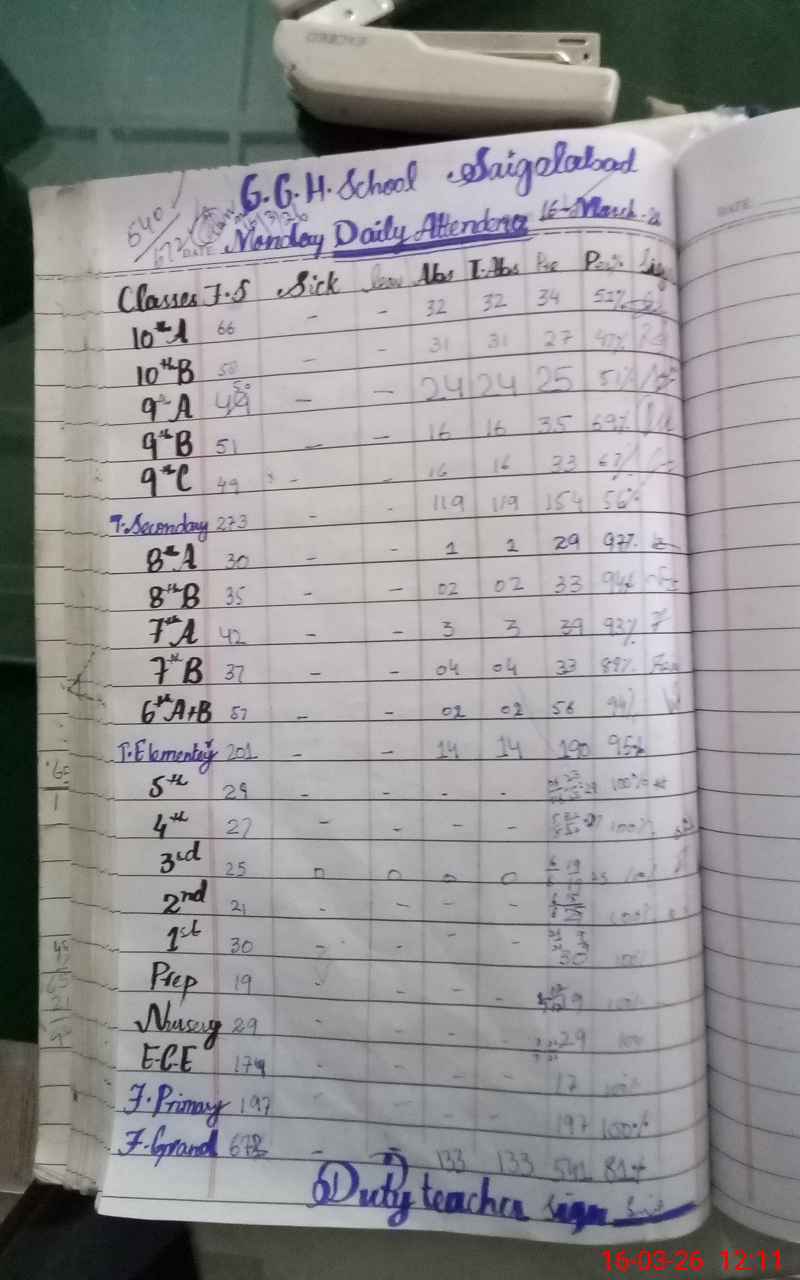 G.G.H.School Saigolabad
540/672
Monday Daily Attendence 16-March-2
DATE
Classes T.S Sick Leave Abs T.Abs Pre Per% Sig
10th A 66 - - 32 32 34 52%
10th B 58 - - 31 31 27 47%
9th A 49 50 - - 24 24 25 51%
9th B 51 - - 16 16 35 69%
9th C 49 - - 16 16 33 67%
T.Secondary 273 - - 119 119 154 56%
8th A 30 - - 1 1 29 97%
8th B 35 - - 02 02 33 94%
7th A 42 - - 3 3 39 93%
7th B 37 - - 04 04 33 89%
6th A+B 57 - - 02 02 56 94%
T.Elementry 201 - - 14 14 190 95%
5th 29 - - - - 29 100%
4th 27 - - - - 27 100%
3rd 25 0 0 0 0 25 100%
2nd 21 - - - - 21 100%
1st 30 - - - - 30 100%
Prep 19 - - - - 19 100%
Nursery 29 - - - - 29 100
E.C.E 17 - - - - 17 100%
T.Primary 197 - - - - 197 100%
T.Grand 672 - - 133 133 541 81%
Duty teacher sign
DATE
16-03-26 12:11